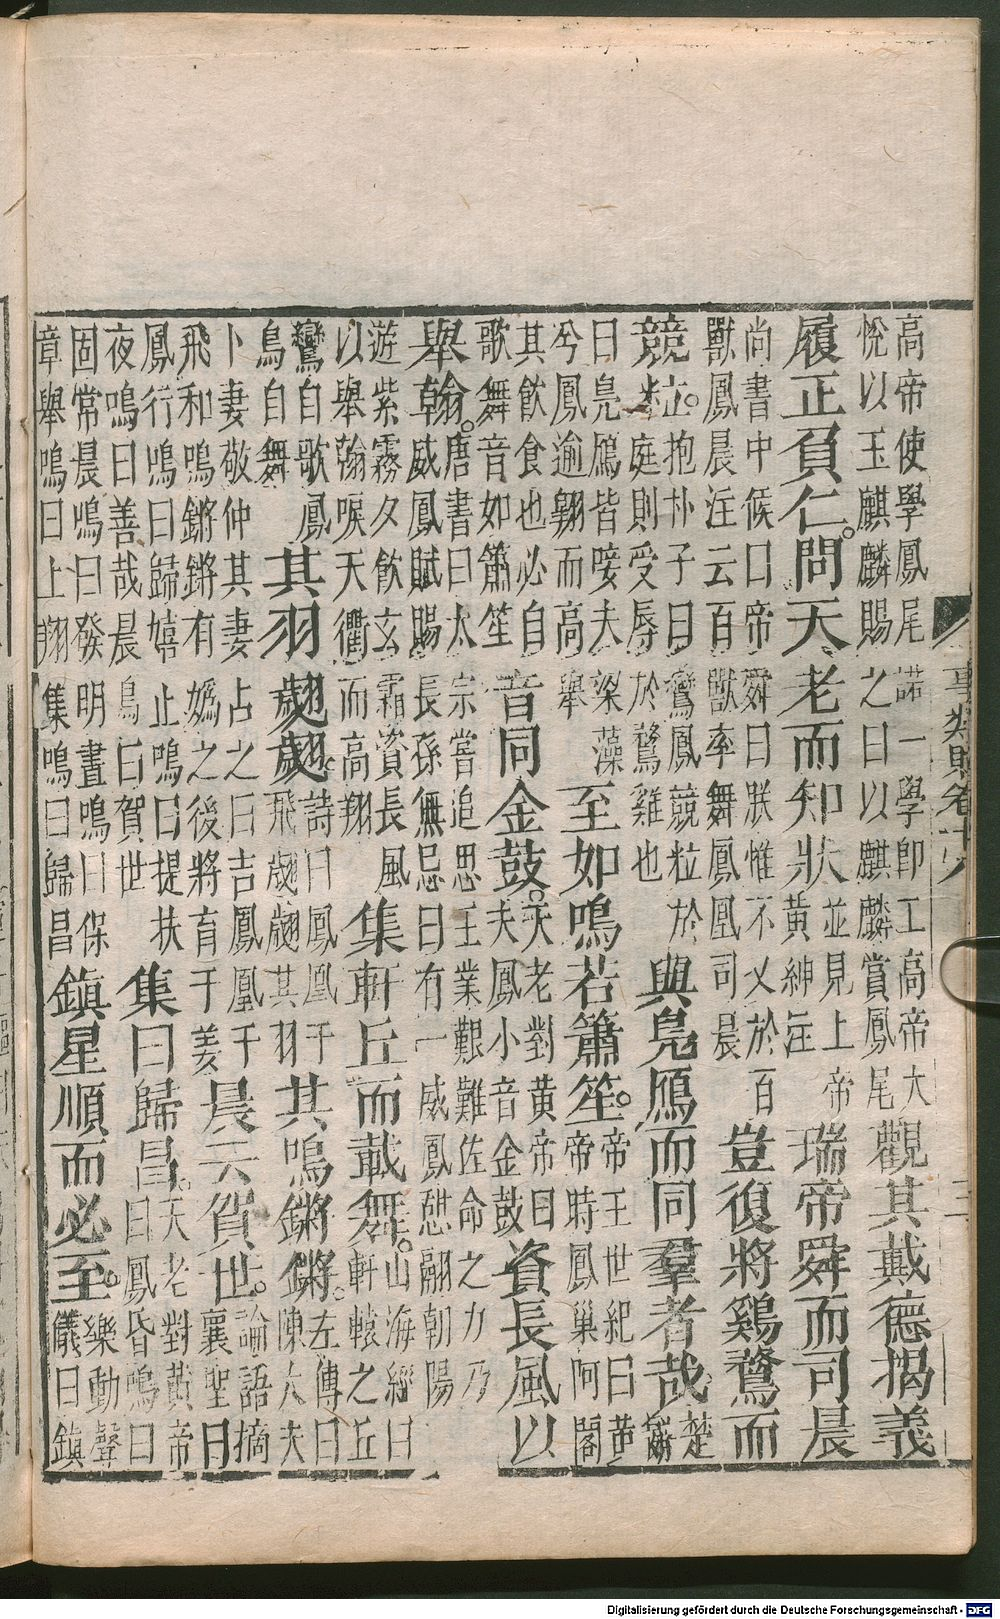 事類賦卷十八 三
高帝使學鳳尾諾一學即工高帝大
悅以玉麒麟賜之曰以麒麟賞鳳尾
觀其戴德揭義
履正負仁。問天老而知狀
並見上帝
黃紳注
瑞帝舜而司晨
尚書中候曰帝舜曰朕惟不乂於百
獸鳳晨注云百獸率舞鳳凰司晨
豈復將鷄鶩而
競粒。
抱朴子曰鸞鳳競粒於
庭則受辱於鶩雞也
與鳧鴈而同羣者哉。
楚
辭
曰鳧鴈皆唼夫梁藻
兮鳳逾翺而高舉
至如鳴若簫笙。
帝王世紀曰黃
帝時鳳巢阿閣
其飲食也必自
歌舞音如簫笙
音同金鼓。
天老對黃帝曰
夫鳳小音金鼓
資長風以
舉翰。
唐書曰太宗嘗追思王業艱難佐命之力乃
威鳳賦賜長孫無忌曰有一威鳳憩翮朝陽
遊紫霧夕飲玄霜資長風
以舉翰唳天衢而高翔
集軒丘而載舞。
山海經曰
軒轅之丘
鸞自歌鳳
鳥自舞
其羽翽翽。
詩曰鳳凰于
飛翽翽其羽
其鳴鏘鏘。
左傳曰
陳大夫
卜妻敬仲其妻占之曰吉鳳凰于
飛和鳴鏘鏘有嬀之後將育于姜
晨云賀世。
論語摘
襄聖曰
鳳行鳴曰歸嬉止鳴曰提扶
夜鳴曰善哉晨鳥曰賀世
集曰歸昌。
天老對黃帝
曰鳳昏鳴曰
固常晨鳴曰發明晝鳴曰保
章舉鳴曰上翔集鳴曰歸昌
鎮星順而必至。
樂動聲
儀曰鎮
Digitalisierung gefördert durch die Deutsche Forschungsgemeinschaft - DFG